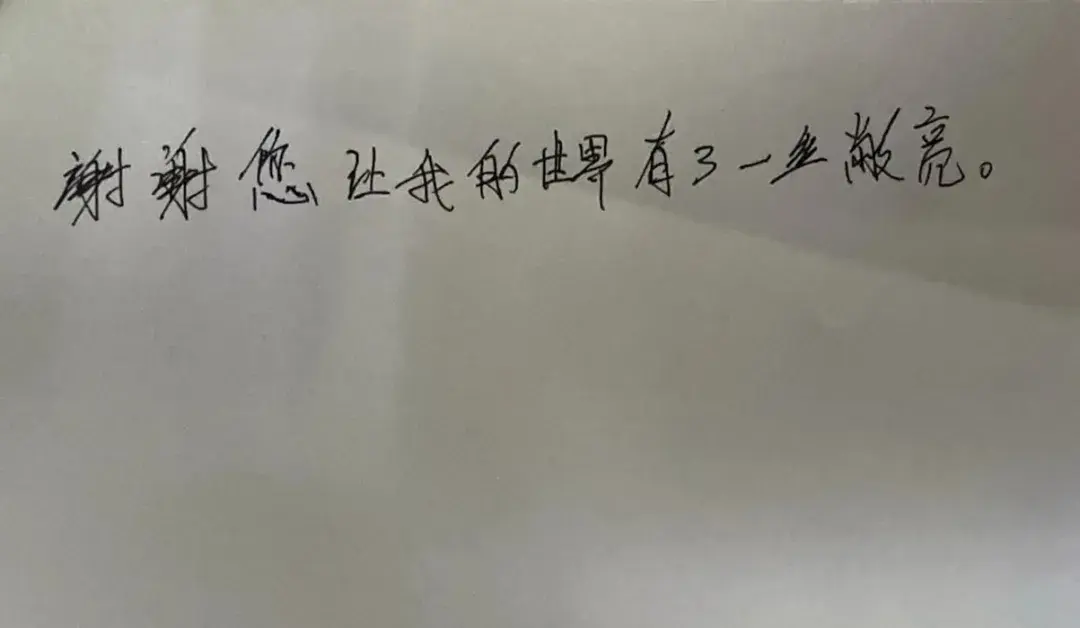 謝謝您让我的世界有了一丝敞亮。